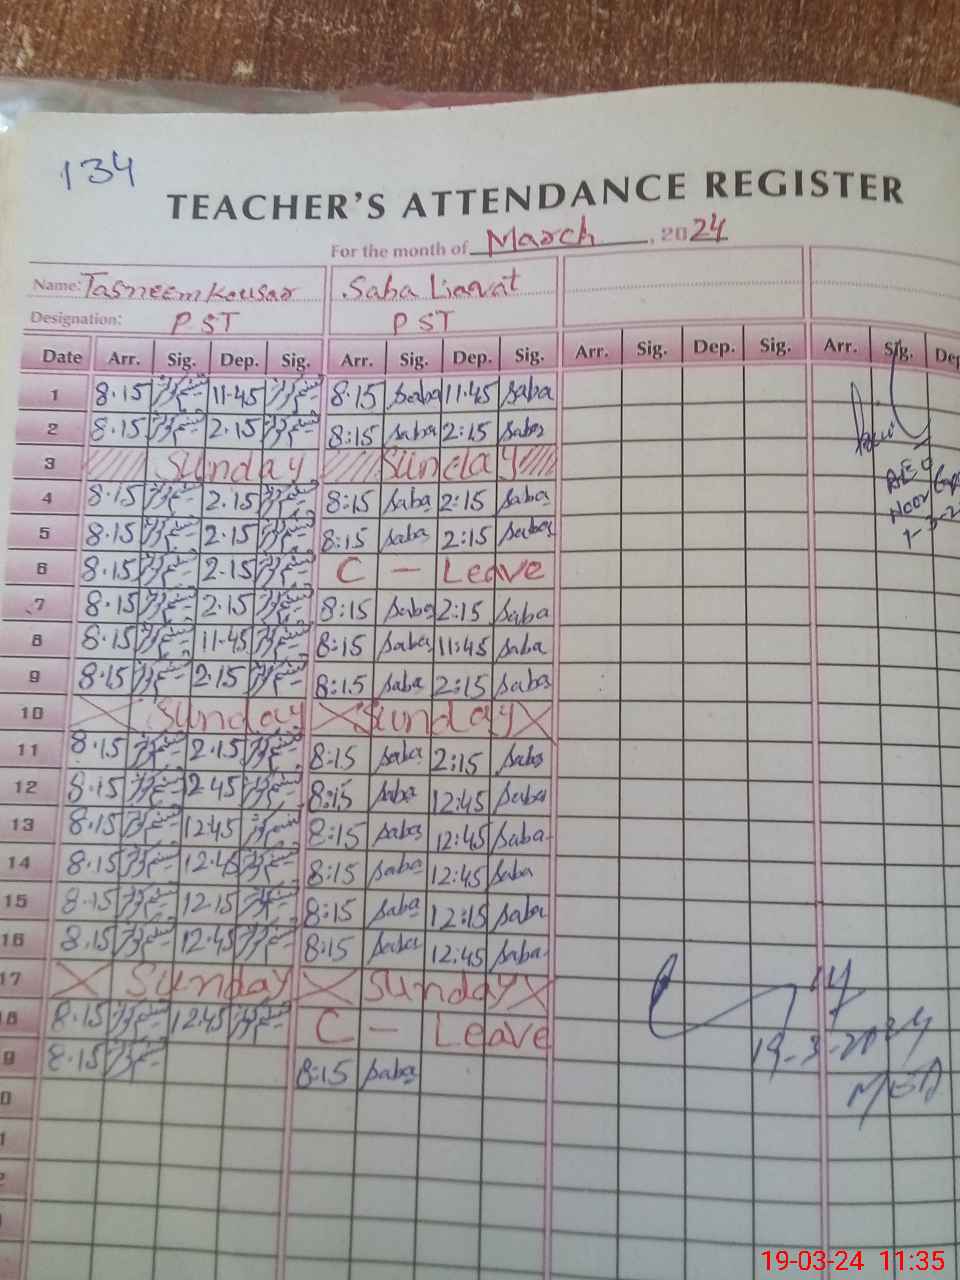 134
TEACHER'S ATTENDANCE REGISTER
For the month of March, 2024
Name: Tasneem Kousar Saba Liaqat
Designation: PST PST
Date Arr. Sig. Dep. Sig. Arr. Sig. Dep. Sig. Arr. Sig. Dep. Sig. Arr. Sig. Dep
1 8.15 11.45 8.15 Saba 11.45 Saba
2 8.15 2.15 8:15 Saba 2:15 Saba
3 Sunday Sunday
4 8.15 2.15 8:15 Saba 2:15 Saba
5 8.15 2.15 8:15 Saba 2:15 Saba
6 8.15 2.15 C - Leave
7 8.15 2.15 8:15 Saba 2:15 Saba
8 8.15 11.45 8:15 Saba 11:45 Saba
9 8.15 2.15 8:15 Saba 2:15 Saba
10 Sunday Sunday
11 8.15 2.15 8:15 Saba 2:15 Saba
12 8.15 12.45 8:15 Saba 12:45 Saba
13 8.15 12.45 8:15 Saba 12:45 Saba
14 8.15 12.45 8:15 Saba 12:45 Saba
15 8.15 12.15 8:15 Saba 12:15 Saba
16 8.15 12.45 8:15 Saba 12:45 Saba
17 Sunday Sunday
8 8.15 12.45 C - Leave
9 8.15 8:15 Saba
0
1
2
AEO
Noor
19-3-2024
MEA
19-03-24 11:35